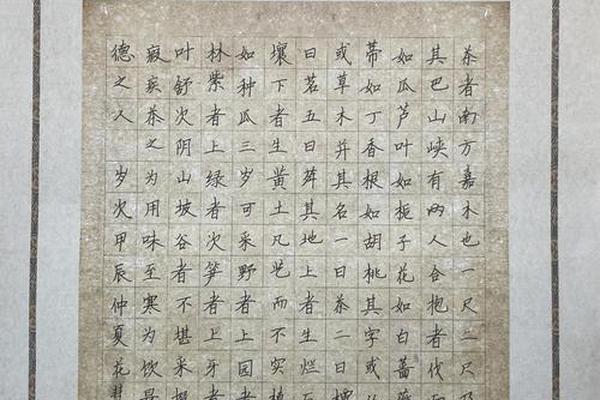 茶者南方嘉木也一尺二尺乃
其巴山峡有两人合抱者伐而
如瓜芦叶如栀子花如白蔷薇
蒂如丁香根如胡桃其字或从
或草木并其名一曰茶二曰槚
曰茗五曰荈其地上者生烂石
壤下者生黄土凡艺而不实植
如种瓜三岁可采野者上园者
林紫者上绿者次笋者上牙者
叶舒次阴山坡谷者不堪采掇
瘕疾茶之为用味至寒为饮最
德之人 岁次甲辰仲夏花